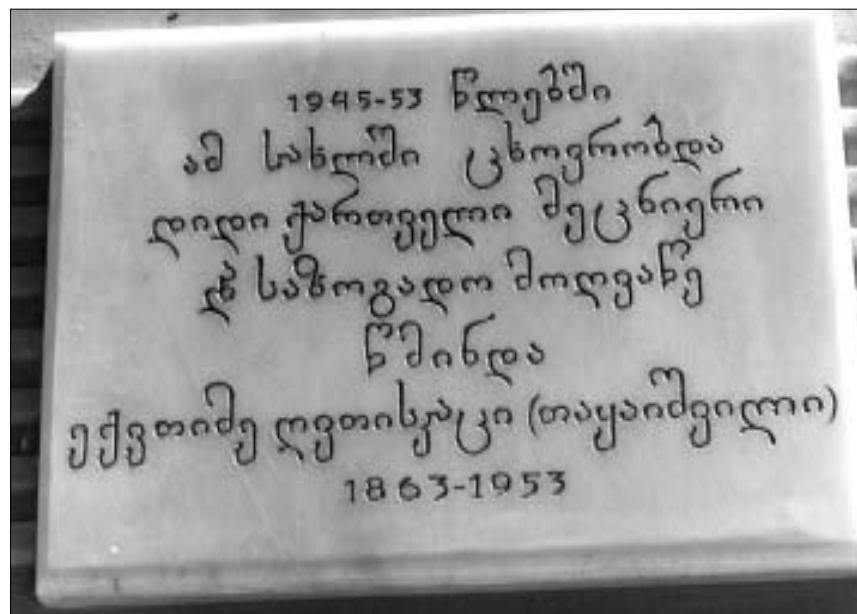 1945-53 წლებში
ამ სახლში ცხოვრობდა
დიდი ქართველი მეცნიერი
და საზოგადო მოღვაწე
წმინდა
ექვთიმე ღვთისკაცი (თაყაიშვილი)
1863-1953